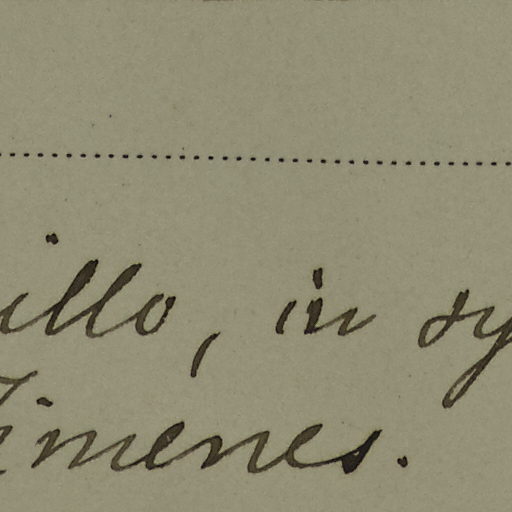 illo, in sy
Jimenes.